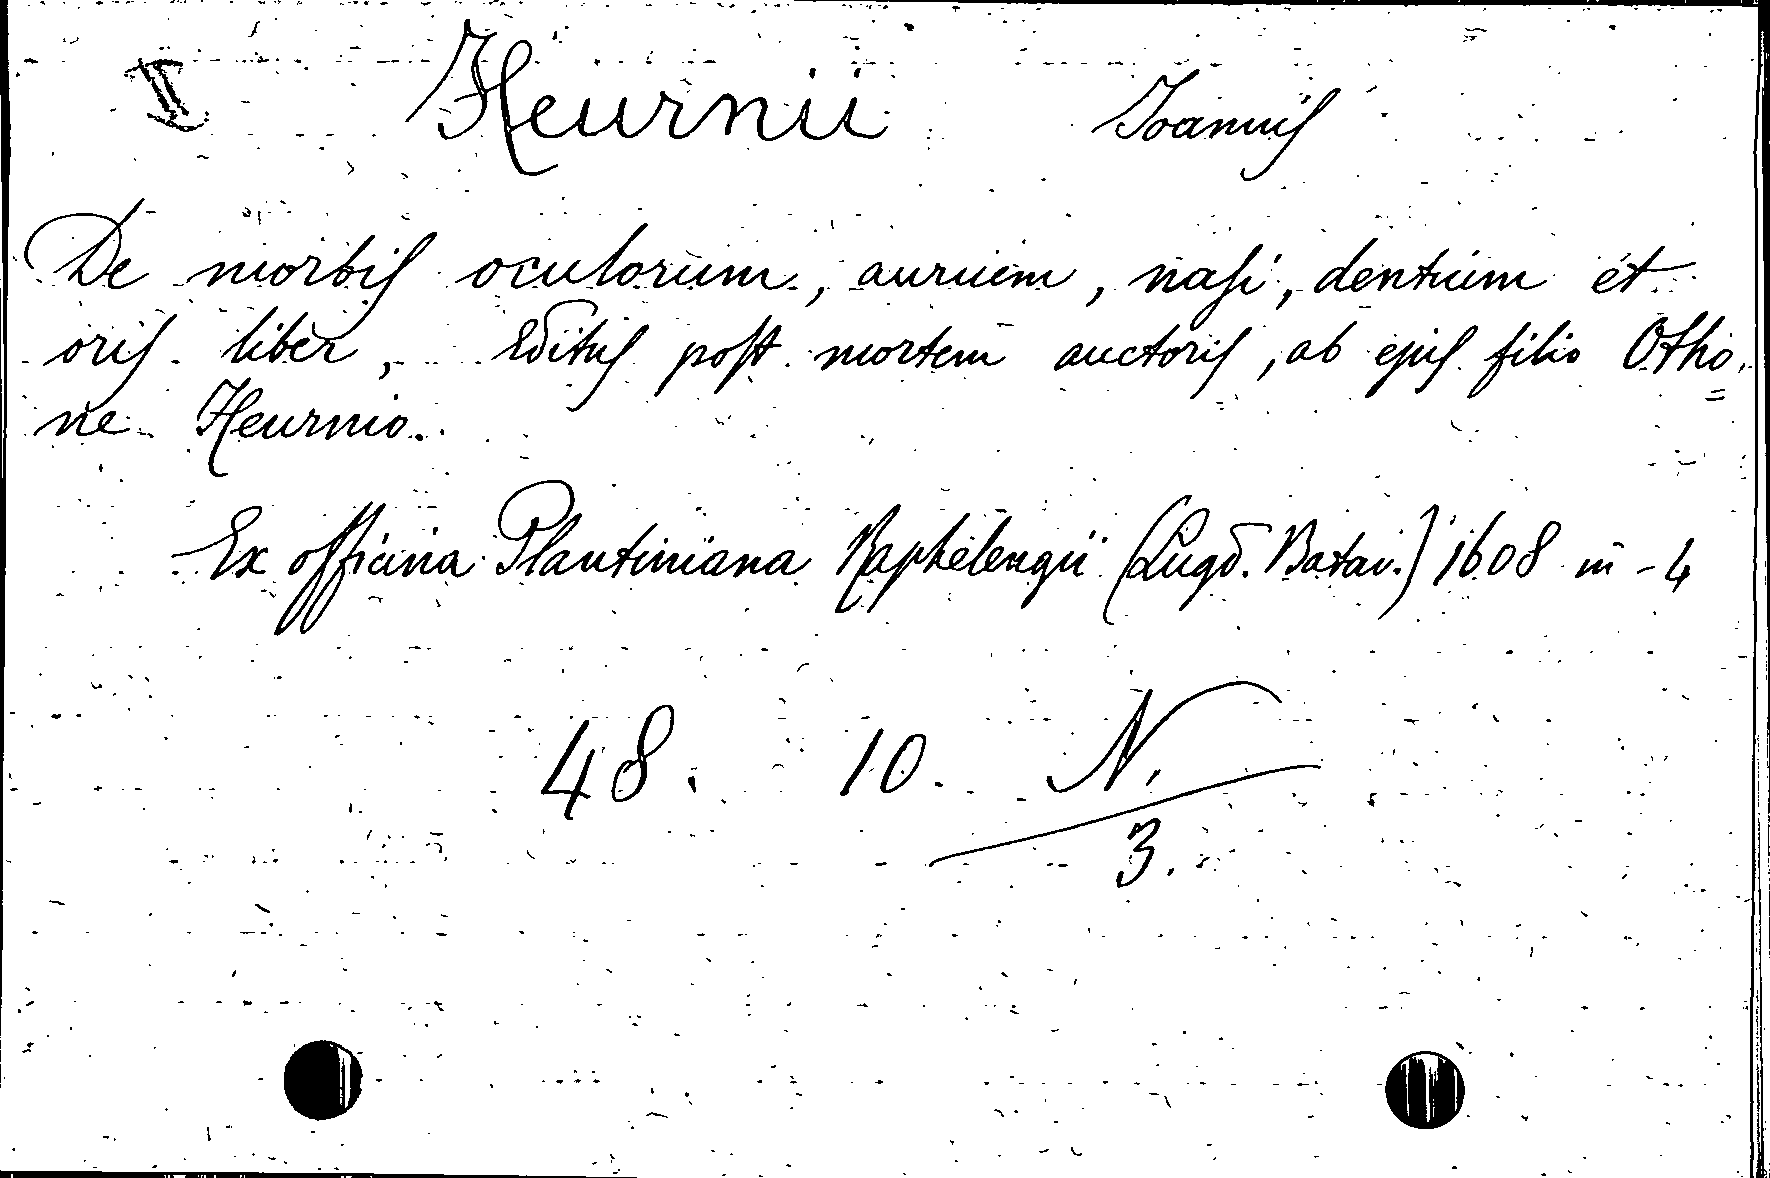 II Heurnii Joannis
De morbis oculorum, aurium, nasi, dentium et
oris liber, editus post mortem auctoris, ab ejus filio Otho=
ne Heurnio.
Ex officina Plantiniana Raphelengii (Lugd. Batav.) 1608 in-4
48. 10. N.
3.